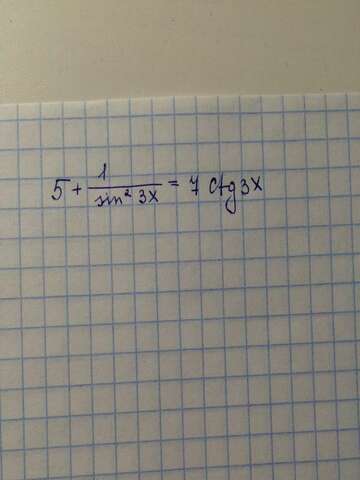 5 + 1/sin² 3x = 7 ctg 3x